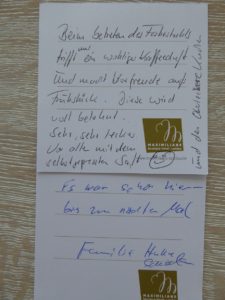 Beim betreten des Frühstücks
trifft man ein wohliger Kaffeeduft
und macht Vorfreude aufs
Frühstück. Diese wird
voll belohnt.
Sehr, sehr lecker
Vor allem mit dem
selbstgepressten Saft
und der
MAXIMILIANS
Es war schön hier
bis zum nächsten Mal
Familie
MAXIMILIANS